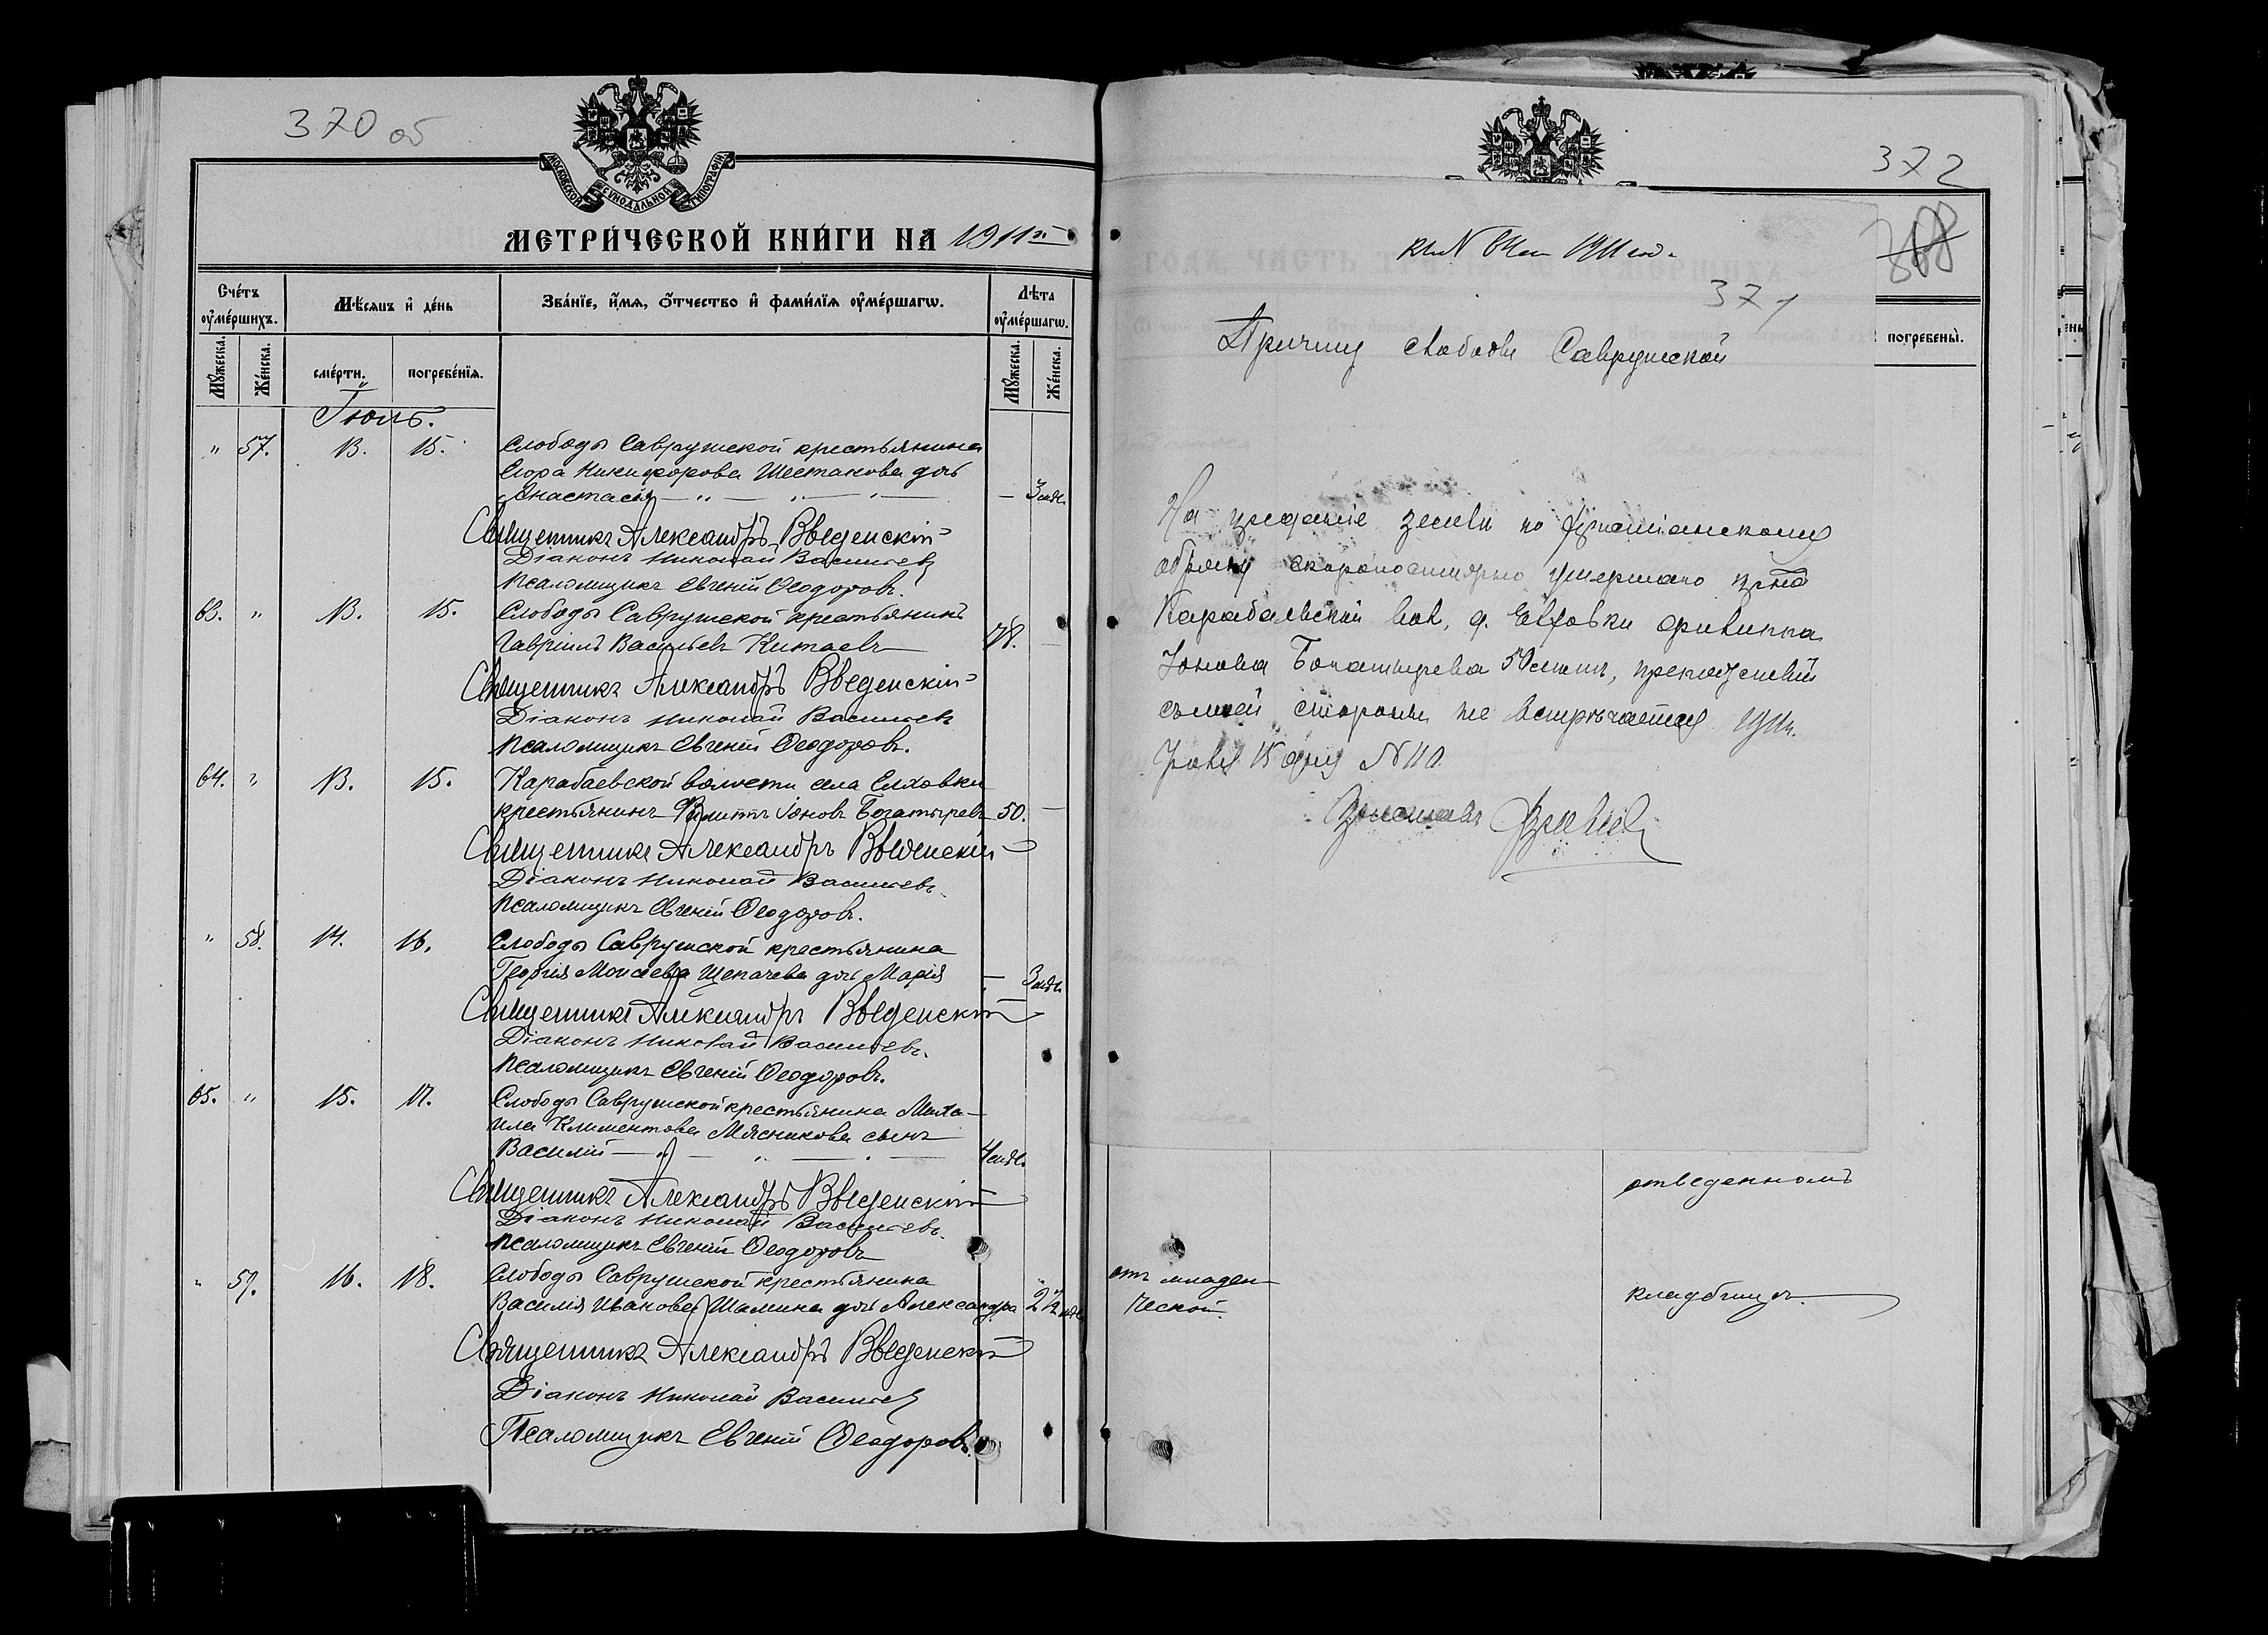 370 об
МОСКОВСКОЙ СѴНОДАЛЬНОЙ ТИПОГРАФІИ
МЕТРИ́ЧЕСКОЙ КНИ́ГИ НА 1911 г.
Сче́тъ оу҆ме́ршихъ.
Мѣ́сяцъ и҆ де́нь
Зва́нїе, и҆́мя, ѻ҆́тчество и҆ фами́лїя оу҆ме́ршагѡ.
Лѣ́та оу҆ме́ршагѡ.
Мꙋ́жеска. Же́нска. сме́рти. погребе́нїя. Мꙋ́жеска. Же́нска.
Іюль.
" 57. 13. 15. Слободы Саврушской крестьянина
Егора Никифорова Шестакова дочь
Анастасія — 3 нед.
Священникъ Александръ Введенскій
Діаконъ Николай Васильевъ
Псаломщикъ Евгеній Ѳеодоровъ.
63. " 13. 15. Слободы Саврушской крестьянинъ
Гавріилъ Васильевъ Китаевъ 78. —
Священникъ Александръ Введенскій
Діаконъ Николай Васильевъ
Псаломщикъ Евгеній Ѳеодоровъ.
64. " 13. 15. Карабаевской волости села Елховки
крестьянинъ Филиппъ Іоновъ Богатыревъ 50. —
Священникъ Александръ Введенскій
Діаконъ Николай Васильевъ
Псаломщикъ Евгеній Ѳеодоровъ.
" 58. 14. 16. Слободы Саврушской крестьянина
Георгія Моисеева Щепачева дочь Марія — 3 нед.
Священникъ Александръ Введенскій
Діаконъ Николай Васильевъ.
Псаломщикъ Евгеній Ѳеодоровъ.
65. " 15. 17. Слободы Саврушской крестьянина Миха-
ила Климентова Мясникова сынъ
Василій 4 нед.
Священникъ Александръ Введенскій
Діаконъ Николай Васильевъ.
Псаломщикъ Евгеній Ѳеодоровъ
" 59. 16. 18. Слободы Саврушской крестьянина
Василія Иванова Шамина дочь Александра 2½ нед.
Священникъ Александръ Введенскій
Діаконъ Николай Васильевъ
Псаломщикъ Евгеній Ѳеодоровъ.
372
388
къ № 64 1911 год.
371
погребены̀.
Причту слободы Саврушской
На преданіе земли по христіанскому
обряду скоропостижно умершаго кр-на
Карабаевской вол. д. Елховки Филиппа
Іонова Богатырева 50 лѣтъ, препятствій
съ моей стороны не встрѣчается 1911 г.
Іюля 15 дня № 110.
отведенномъ
отъ младен-
ческой.
кладбищѣ.